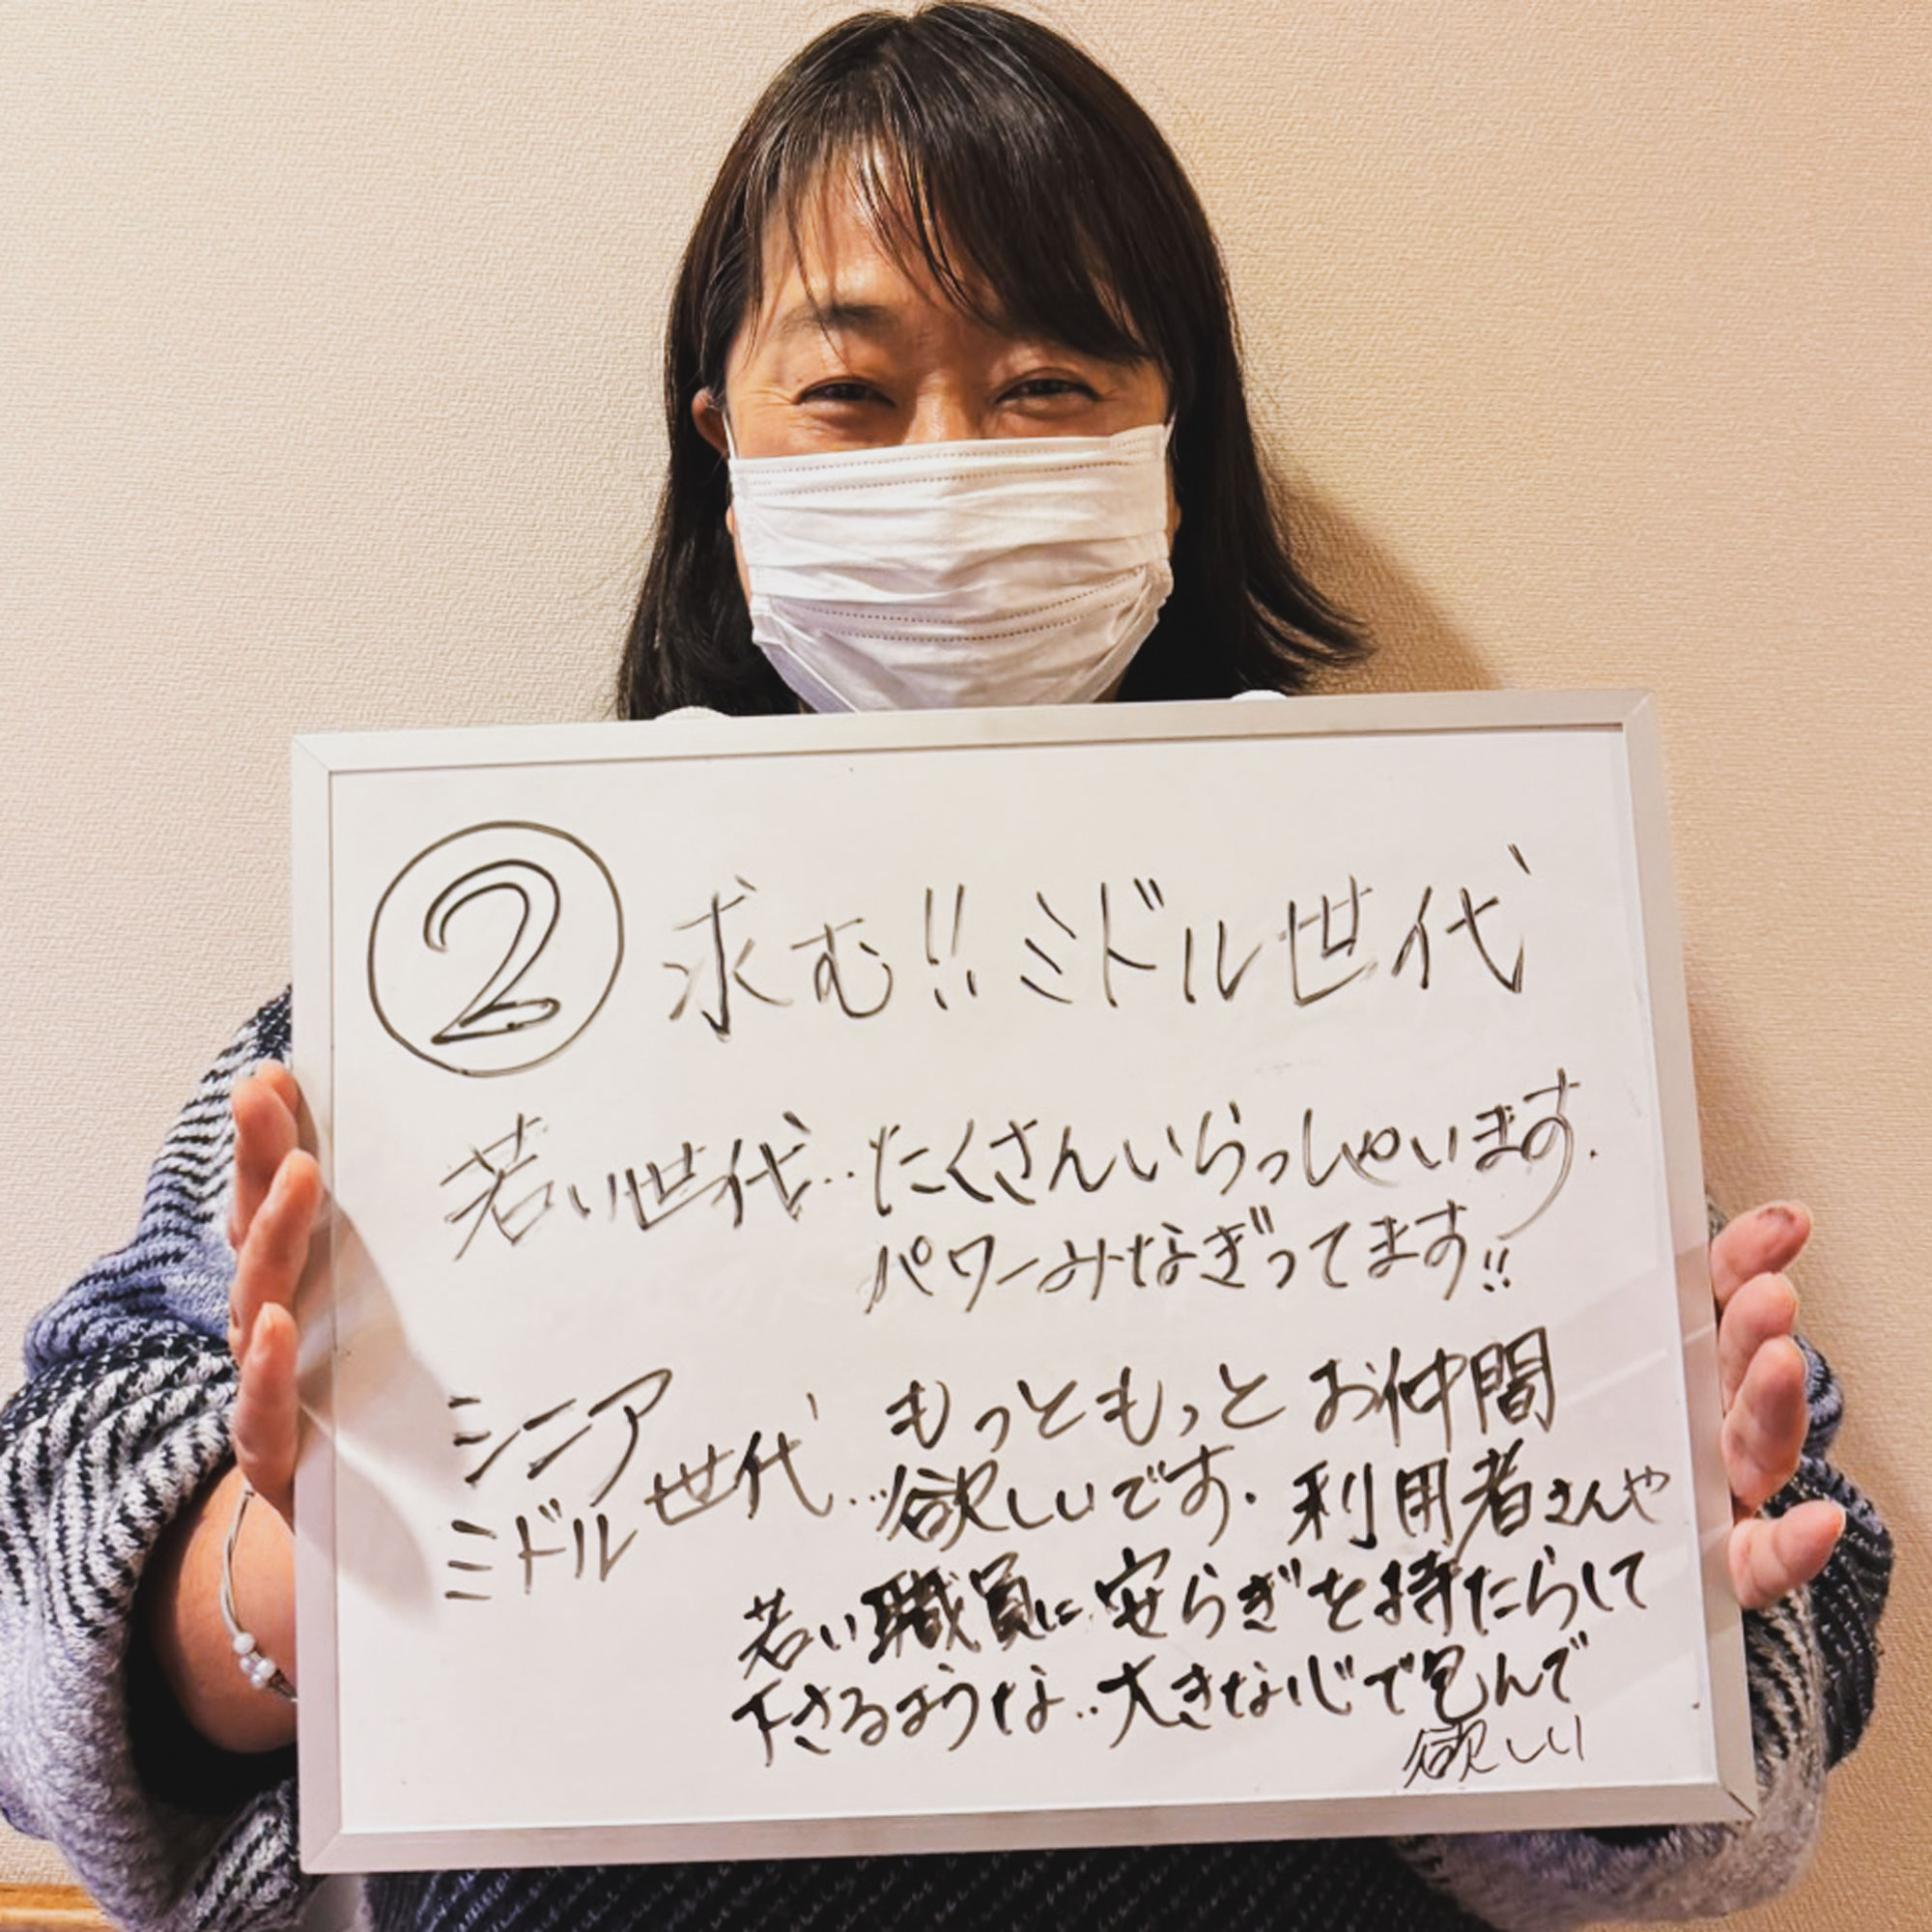 ② 求む!! ミドル世代
若い世代‥たくさんいらっしゃいます.
パワーみなぎってます!!
シニア
ミドル世代…もっともっとお仲間
欲しいです. 利用者さんや
若い職員に安らぎを持たらして
下さるような‥大きな心で包んで
欲しい